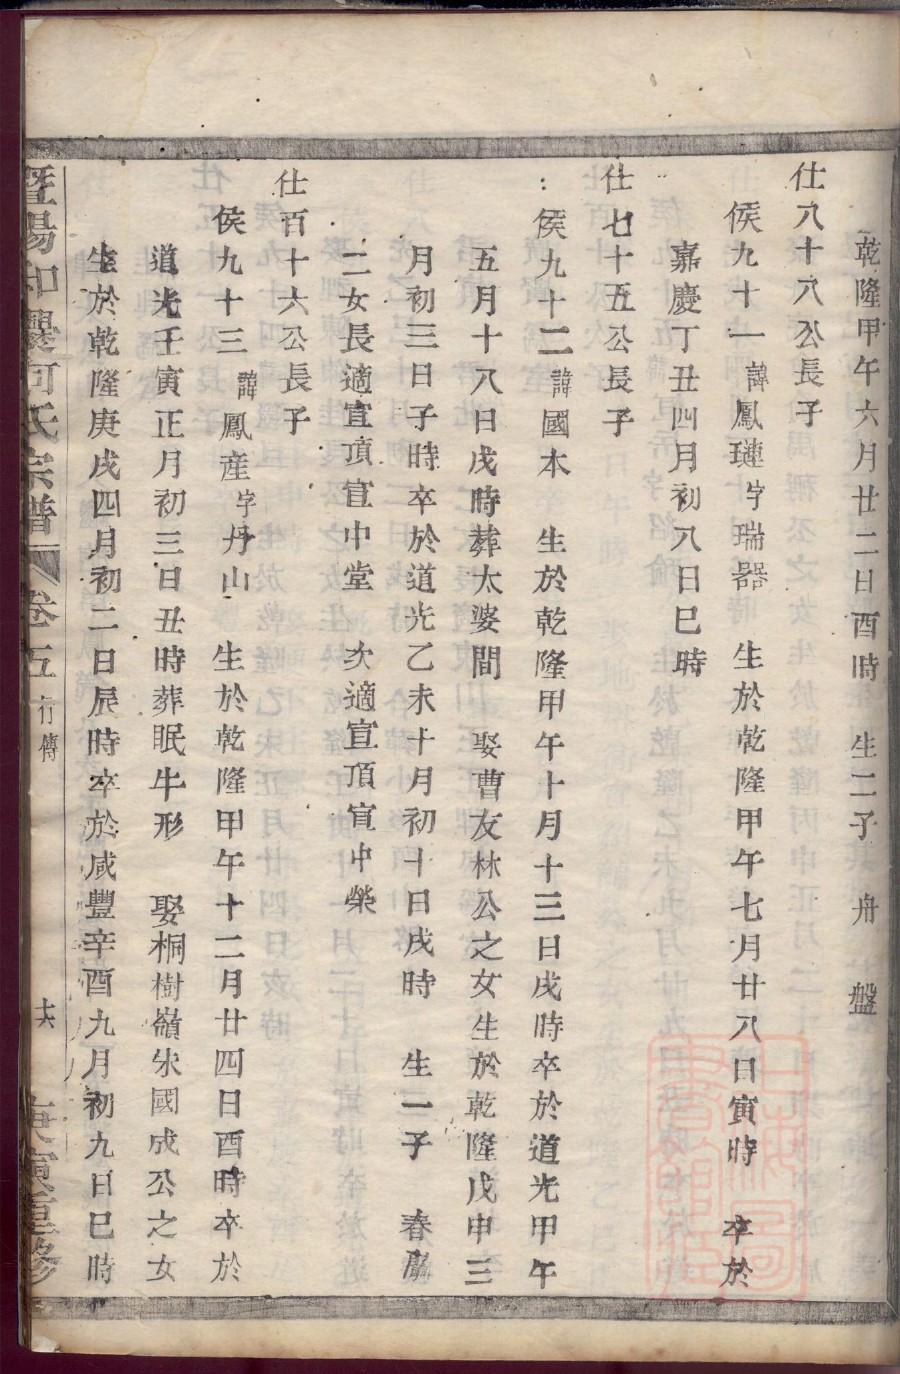 乾隆甲午六月廿二日酉時 生二子 舟 盤
仕八十八公長子
侯九十一 諱鳳璉 字瑞器 生於乾隆甲午七月廿八日寅時 卒於
嘉慶丁丑四月初八日巳時
仕七十五公長子
侯九十二 諱國本 生於乾隆甲午十月十三日戌時卒於道光甲午
五月十八日戌時葬太婆間 娶曹友林公之女生於乾隆戊申三
月初三日子時卒於道光乙未十月初十日戌時 生一子 春
二女長適宣頂宣中堂 次適宣頂宣中榮
仕百十六公長子
侯九十三 諱鳳產 字丹山 生於乾隆甲午十二月廿四日酉時卒於
道光壬寅正月初三日丑時葬眠牛形 娶桐樹嶺朱國成公之女
生於乾隆庚戌四月初二日辰時卒於咸豐辛酉九月初九日巳時
暨陽 何氏宗譜 卷五 行傳 十六 庚寅重修